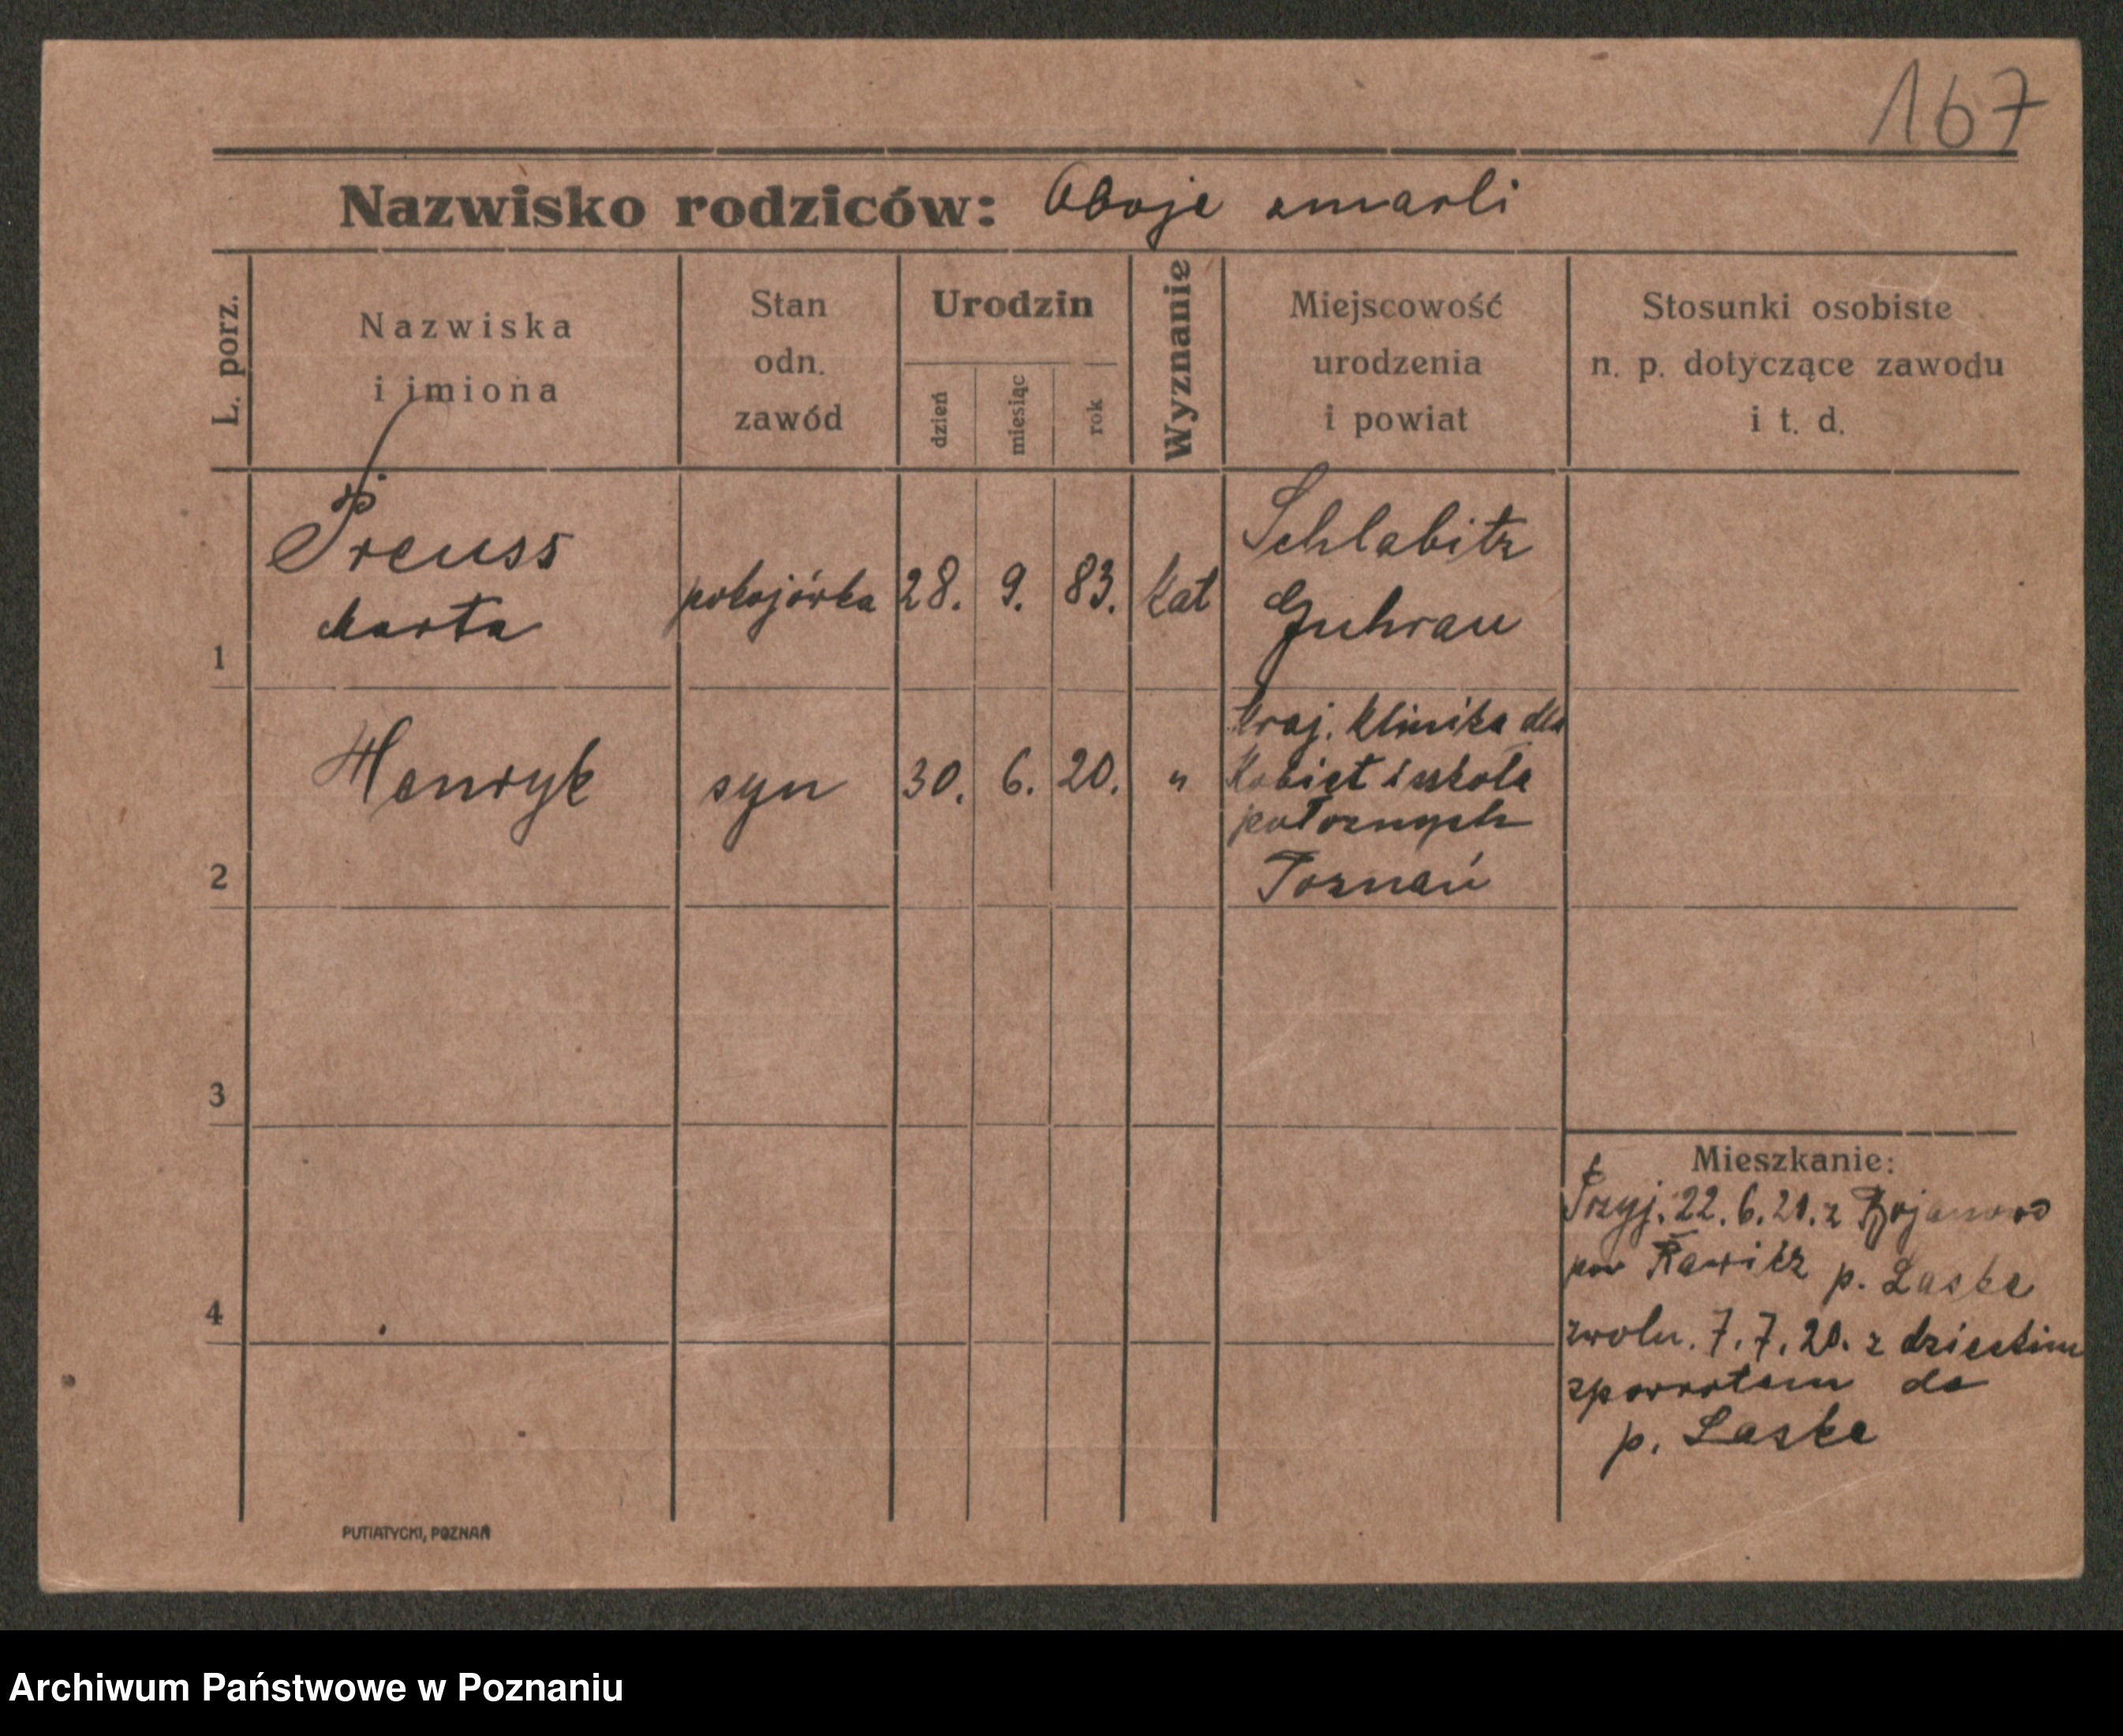 167
Nazwisko rodziców: Oboje zmarli
L. porz.
Nazwiska
i imiona
Stan
odn.
zawód
Urodzin
dzień
miesiąc
rok
Wyznanie
Miejscowość
urodzenia
i powiat
Stosunki osobiste
n. p. dotyczące zawodu
i t. d.
1
Preuss
Marta
pokojówka
28. 9. 83.
kat
Schlabitz
Guhrau
2
Henryk
syn
30. 6. 20.
"
Kraj. Klinika dla
Kobiet i szkoła
położnych
Poznań
3
4
Mieszkanie:
Przyj. 22. 6. 20. z Bojanowo
pow Rawicz p. Laske
zwoln. 7. 7. 20. z dzieckim
zpowrotem do
p. Laske
PUTIATYCKI, POZNAŃ
Archiwum Państwowe w Poznaniu